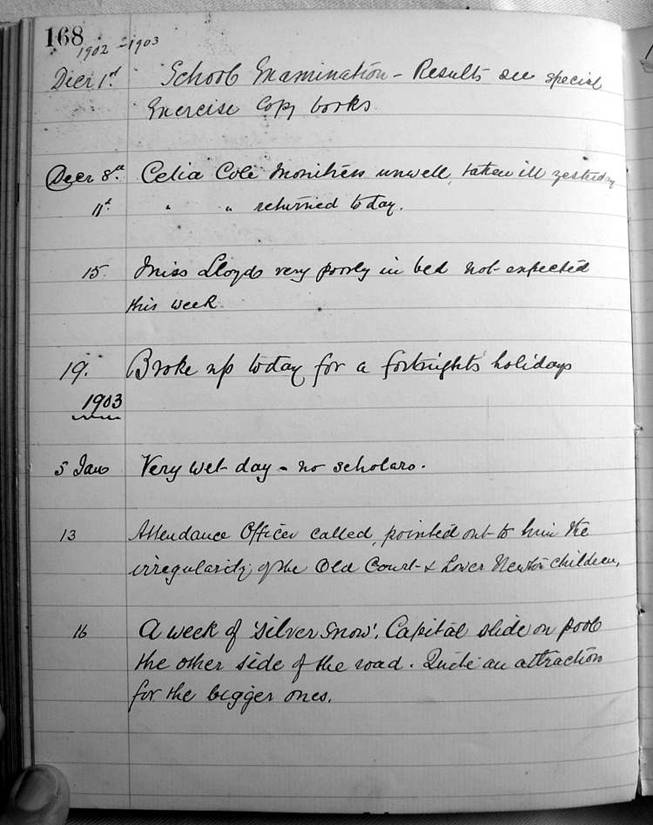 168
1902 - 1903
Decr 1st School Examination - Results see special
Exercise Copy books
Decr 8th Celia Cole Monitress unwell, taken ill yesterday
11th " " returned today.
15 Miss Lloyds very poorly in bed not expected
this week
19. Broke up today for a fortnights holidays
1903
5 Jan Very wet day - no scholars.
13 Attendance Officer called, pointed out to him the
irregularity of the Old Court & Lower Newton children,
16 A week of 'silver snow'. Capital slide on pool
the other side of the road. Quite an attraction
for the bigger ones.